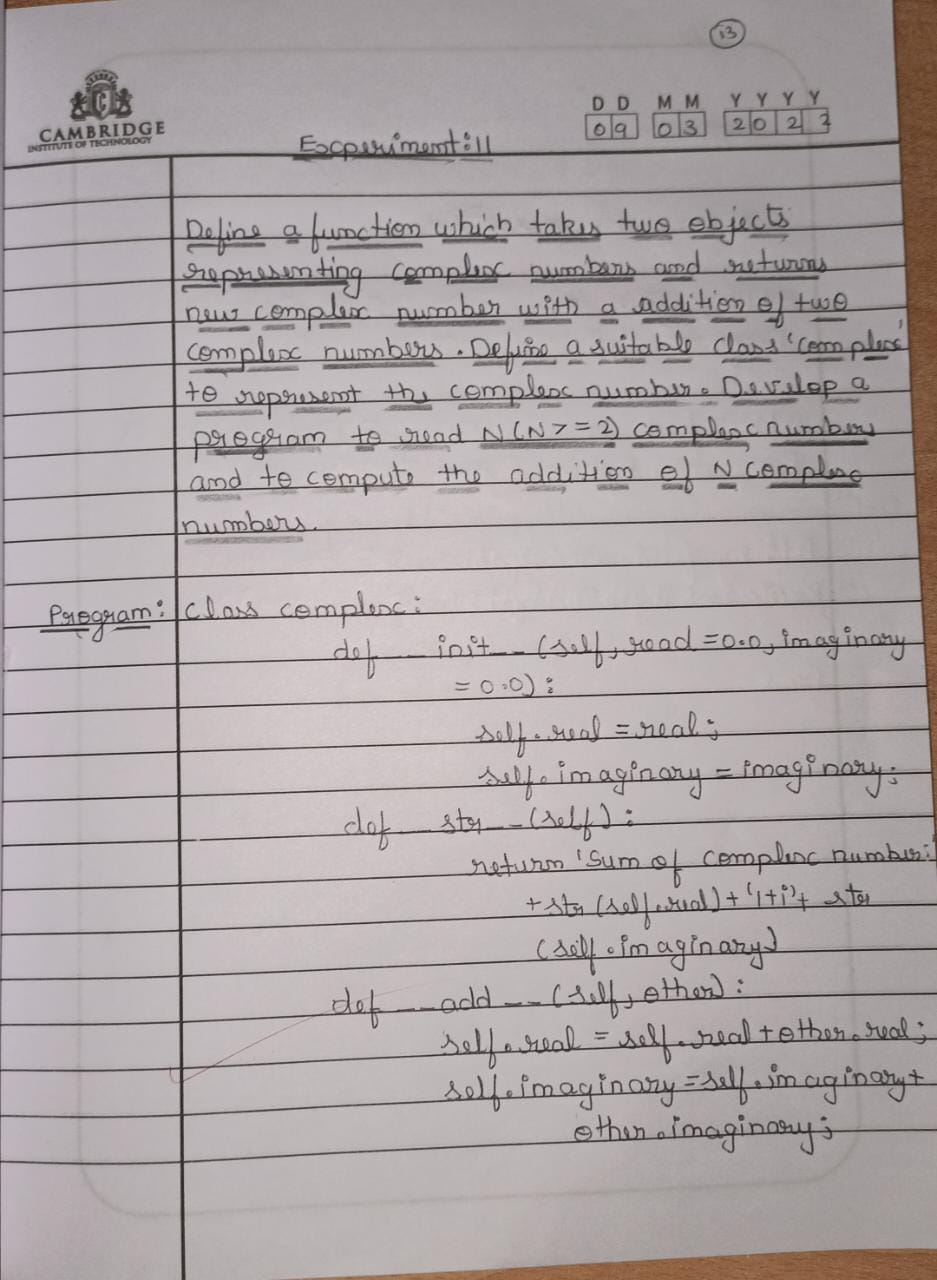 13
CAMBRIDGE
INSTITUTE OF TECHNOLOGY
D D M M Y Y Y Y
09 03 2023
Experiment:11
Define a function which takes two objects
representing complex numbers and returns
new complex number with a addition of two
complex numbers. Define a suitable class 'complex'
to represent the complex number. Develop a
program to read N(N>=2) complex numbers
and to compute the addition of N complex
numbers.
Program: class complex:
def __init__(self, read =0.0, imaginary
=0.0):
self.real =real;
self.imaginary = imaginary;
def __str__(self):
return 'Sum of complex number:'
+str(self.real)+'1+i'+ str
(self.imaginary)
def __add__(self, other):
self.real = self.real+other.real;
self.imaginary=self.imaginary+
other.imaginary;